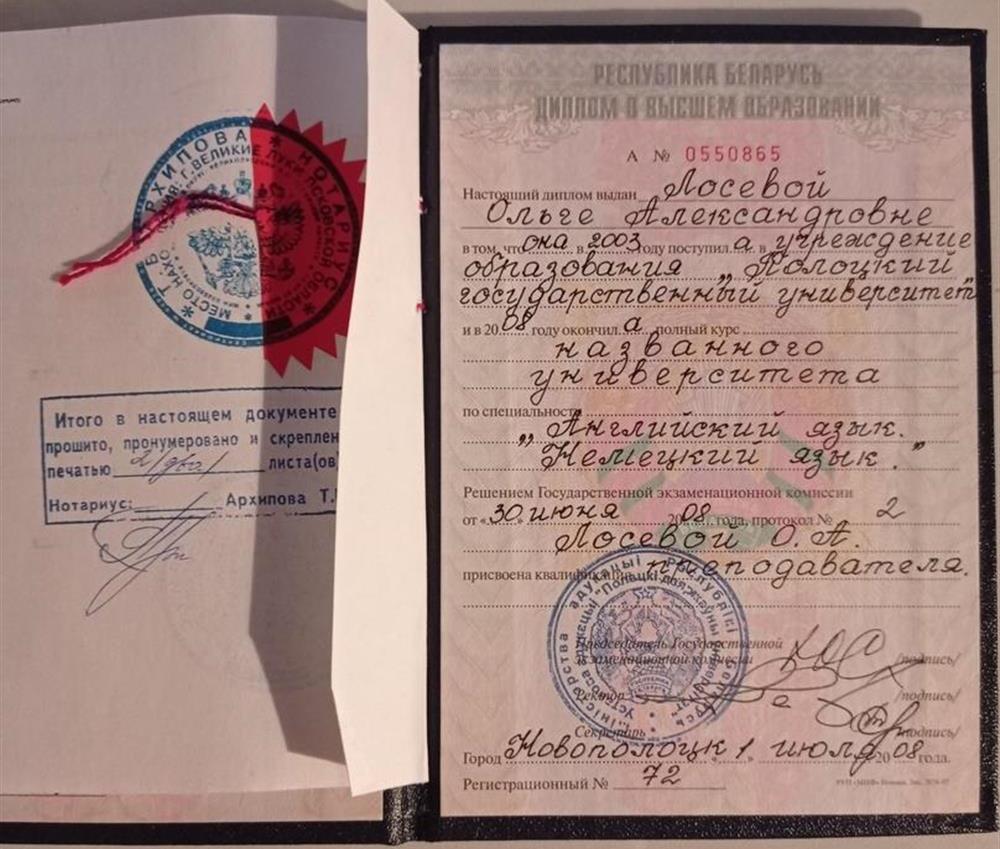 Итого в настоящем документе
прошито, пронумеровано и скреплен
печатью 2/два/ листа(ов)
Нотариус: Архипова Т.
НОТАРИУС
РЕСПУБЛИКА БЕЛАРУСЬ
ДИПЛОМ О ВЫСШЕМ ОБРАЗОВАНИИ
А № 0550865
Настоящий диплом выдан Лосевой
Ольге Александровне
в том, что она в 2003 году поступил а в учреждение
образования „Полоцкий
государственный университет"
и в 20 08 году окончил а полный курс
названного
университета
по специальности
„Английский язык.
Немецкий язык."
Решением Государственной экзаменационной комиссии
от «30» июня 20 08 года, протокол № 2
Лосевой О. А.
присвоена квалификация преподавателя.
Председатель Государственной
экзаменационной комиссии /подпись/
Ректор /подпись/
Секретарь /подпись/
Город Новополоцк «1» июля 20 08 года.
Регистрационный № 72